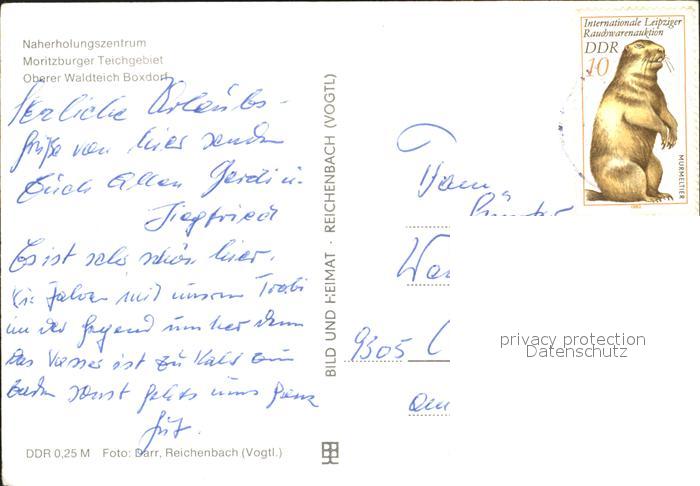 Naherholungszentrum
Moritzburger Teichgebiet
Oberer Waldteich Boxdorf
Herzliche Urlaubs-
grüße von hier senden
Euch Allen Gerdi u.
Siegfried
Es ist sehr schön hier.
Wir fahren mit unserm Trabi
in der Gegend umher denn
das Wasser ist zu kalt zum
baden sonst gehts uns ganz
gut.
DDR 0,25 M Foto: Darr, Reichenbach (Vogtl.)
BILD UND HEIMAT · REICHENBACH (VOGTL)
Internationale Leipziger
Rauchwarenauktion
DDR
10
MURMELTIER
1982
Fam.
9305
privacy protection
Datenschutz